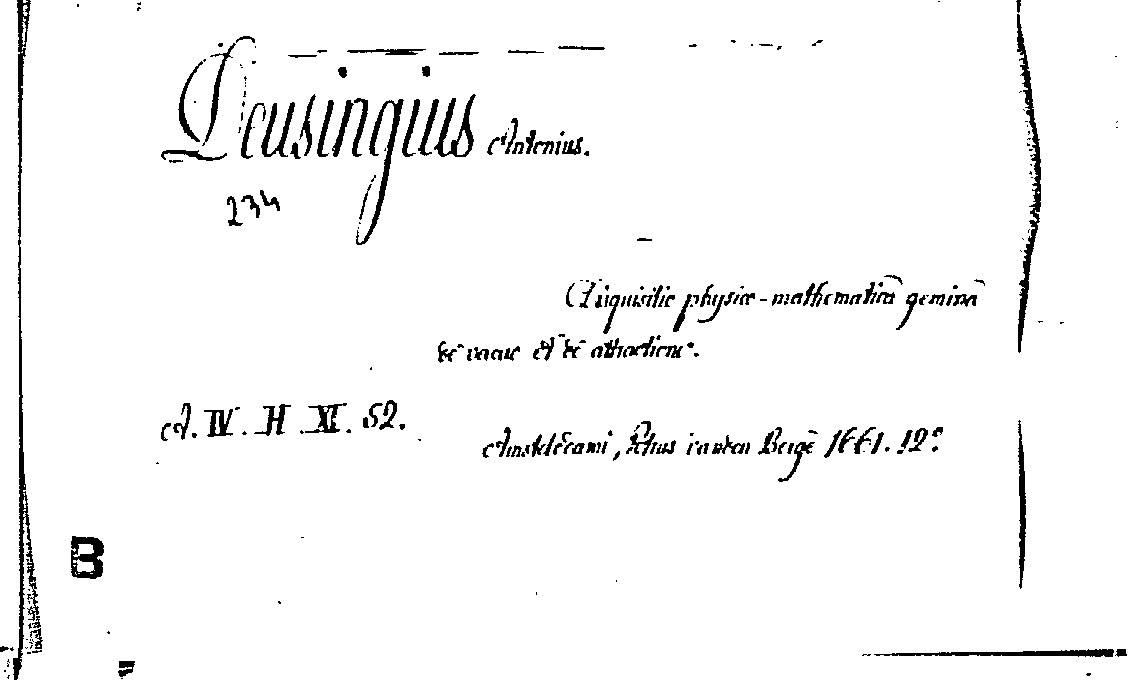 Deusingius Antonius.
234
Disquisitio physico-mathematica gemina
de vacuo et de attractione.
A. IV. H. XI. 52.
Amstelodami, Petrus van den Berge 1661. 12º
B